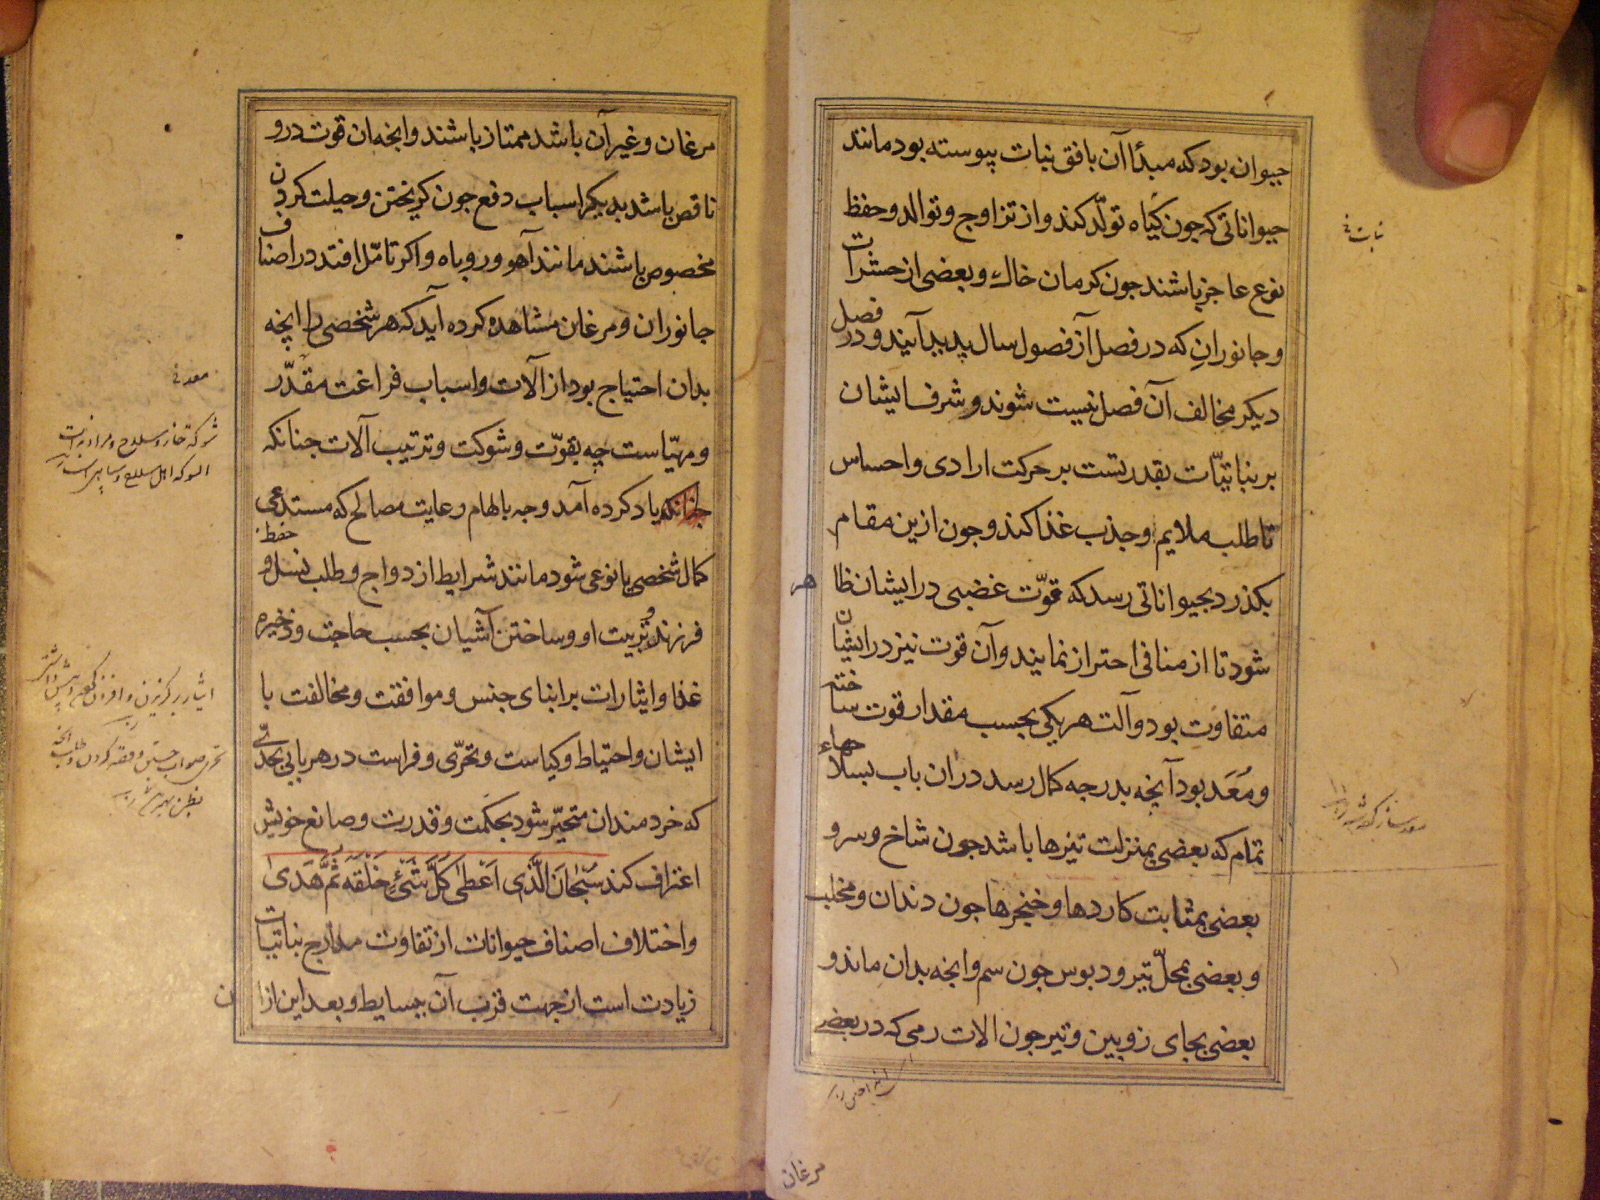 حیوان بود که مبدأ آن بافق نبات پیوسته بود مانند
حیواناتی که چون کیاه تولّد کند و از تزاوج و توالد و حفظ
نوع عاجز باشند جون کرمان خاك و بعضی از حشرات
و جانوران که در فصل از فصول سال پدید آیند و در فصل
دیکر مخالف آن فصل نیست شوند و شرف ایشان
بر نباتیّات بقدر تست بر حرکت ارادی و احساس
تا طلب ملایم و جذب غذا کند و جون ازین مقام
بکذرد بحیواناتی رسد که قوّت غضبی در ایشان ظاهر
شود تا از منافی احتراز نمایند و آن قوت نیز در ایشان
متفاوت بود و آلت هر یکی بحسب مقدار قوت ساخته
و مُعَد بود آنچه بدرجه کمال رسد دران باب بسلاحهاء
تمام که بعضی بمنزلت نیزها باشد جون شاخ و سرو
بعضی بمثابت کاردها و خنجرها جون دندان و مخلب
و بعضی بمحلّ تیر و دبوس جون سم و انجه بدان ماند و
بعضی بجای زوبین و تیر جون الات رمی که در بعضے
مرغان
مرغان و غیر آن باشد ممتاز باشند و انجه ان قوت درو
ناقص باشد بدیکر اسباب دفع جون کریختن و حیلت کردن
مخصوص باشند مانند آهو و روباه و اکر تامّل افتد در اصناف
جانوران و مرغان مشاهده کرده آید که هر شخصی را انجه
بدان احتیاج بود از آلات و اسباب فراغت مقدّر
و مهیّاست چه بقوّت و شوکت و ترتیب آلات جنانکه
یاد کرده آمد و چه بالهام رعایت مصالح که مستدعی
کمال شخصی یا نوعی شود مانند شرایط ازدواج و طلب نسل و حفظ
فرزند و تربیت او و ساختن آشیان بحسب حاجت و ذخیره
غذا و ایثارات بر ابنای جنس و موافقت و مخالفت با
ایشان و احتیاط و کیاست و تحرّی و فراست در هر بابی بحدّی
که خردمندان متحیّر شود بحکمت و قدرت و صانع خویش
اعتراف کند سُبْحَانَ الَّذی اَعْطٰی کُلَّ شَیْءٍ خَلْقَهُ ثُمَّ هَدٰی
و اختلاف اصناف حیوانات از تفاوت مدارج نباتیات
زیادت است از جهت قرب آن ببسایط و بعد این ازان